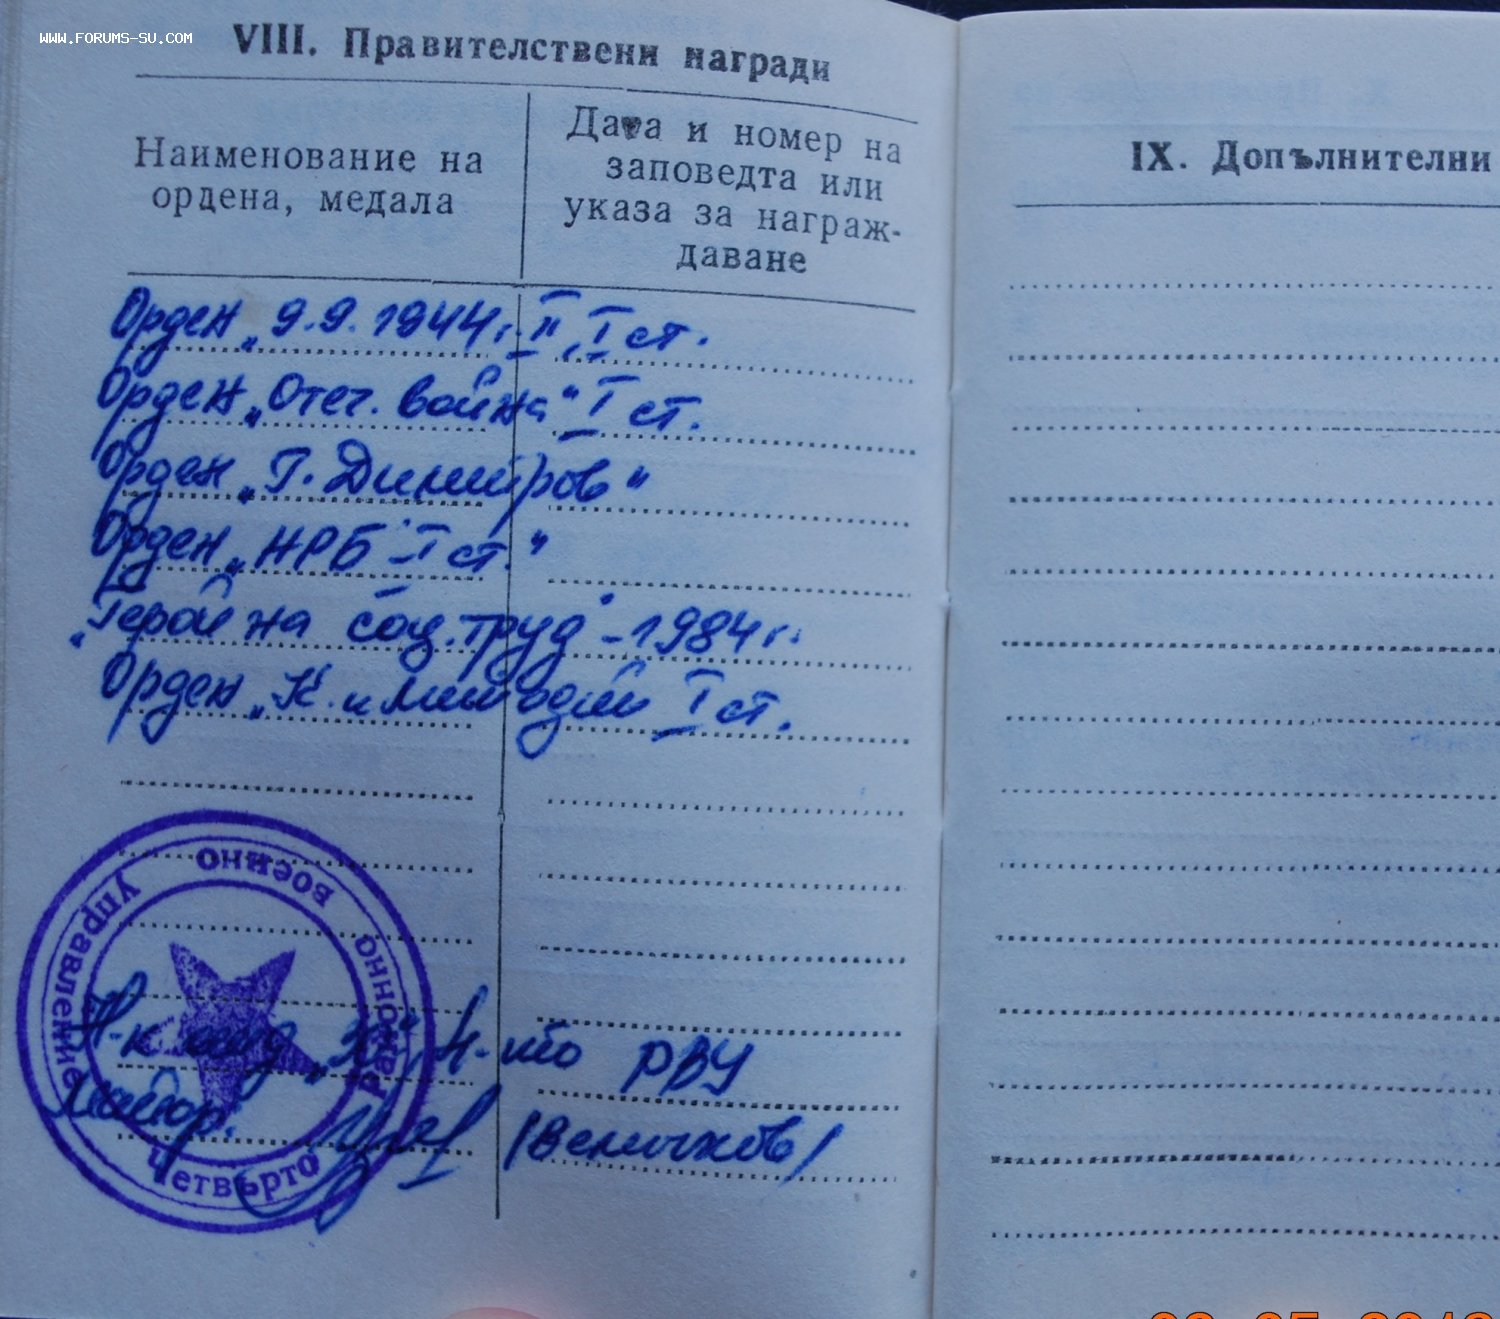 WWW.FORUMS-SU.COM
VIII. Правителствени награди
Наименование на
ордена, медала
Дата и номер на
заповедта или
указа за награж-
даване
Орден „9.9.1944г. II, I ст.
Орден „Отеч. война“ I ст.
Орден „Г. Димитров“
Орден „НРБ - I ст.“
„Герой на соц. труд“ - 1984 г.
Орден „К. и Методий I ст.
Четвърто районно военно управление
Н-к отд „ “, 4-то РВУ
майор: /Величков/
IX. Допълнителни